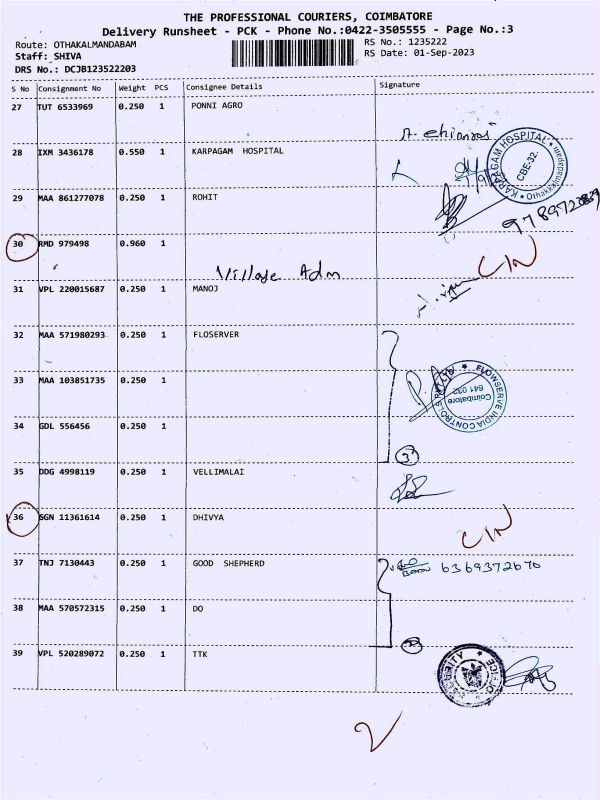 THE PROFESSIONAL COURIERS, COIMBATORE
Delivery Runsheet - PCK - Phone No.:0422-3505555 - Page No.:3
Route: OTHAKALMANDABAM RS No.: 1235222
Staff: SHIVA RS Date: 01-Sep-2023
DRS No.: DCJB123522203
S No Consignment No Weight PCS Consignee Details Signature
27 TUT 6533969 0.250 1 PONNI AGRO
28 IXM 3436178 0.550 1 KARPAGAM HOSPITAL
KARPAGAM HOSPITAL
CBE-32.
29 MAA 861277078 0.250 1 ROHIT
30 RMD 979498 0.960 1
Village Adm
31 VPL 220015687 0.250 1 MANOJ
32 MAA 571980293 0.250 1 FLOSERVER
33 MAA 103851735 0.250 1
FLOWSERVE INDIA CONTROLS
Coimbatore
641 032
34 GDL 556456 0.250 1
3
35 DDG 4998119 0.250 1 VELLIMALAI
36 SGN 11361614 0.250 1 DHIVYA
37 TNJ 7130443 0.250 1 GOOD SHEPHERD
6369372670
38 MAA 570572315 0.250 1 DO
39 VPL 520289072 0.250 1 TTK
2